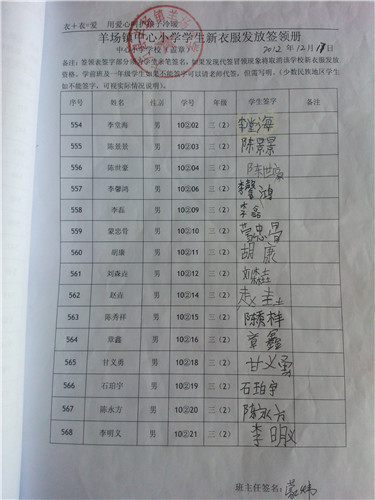 衣+衣=爱 用爱心呵护孩子冷暖
羊场镇中心小学学生新衣服发放签领册
中心小学校(盖章) 2012 12月18日
备注:签领表签字部分必须学生亲笔签名,如果发现代签冒领现象将取消该学校新衣服发放
资格,学前班及一年级学生如果不能签字可以请老师代签,但需写明。(少数民族地区学生
如不能签字,可视实际情况说明)。
序号 姓名 性别 学号 年级 学生签字 备注
554 李堂海 男 10②02 三(2) 李堂海
555 陈景景 男 10②03 三(2) 陈景景
556 陈世豪 男 10②04 三(2) 陈世豪
557 李馨鸿 男 10②06 三(2) 李馨鸿
558 李磊 男 10②09 三(2) 李磊
559 蒙忠骨 男 10②10 三(2) 蒙忠骨
560 胡康 男 10②11 三(2) 胡康
561 刘森 男 10②12 三(2) 刘森
562 赵 男 10②14 三(2) 赵
563 陈秀祥 男 10②15 三(2) 陈秀祥
564 章鑫 男 10②16 三(2) 章鑫
565 甘义勇 男 10②18 三(2) 甘义勇
566 石珀宇 男 10②19 三(2) 石珀宇
567 陈永方 男 10②20 三(2) 陈永方
568 李明义 男 10②21 三(2) 李明义
班主任签名: